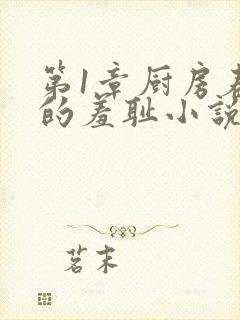 第1章厨房
的羞耻小説
茗末